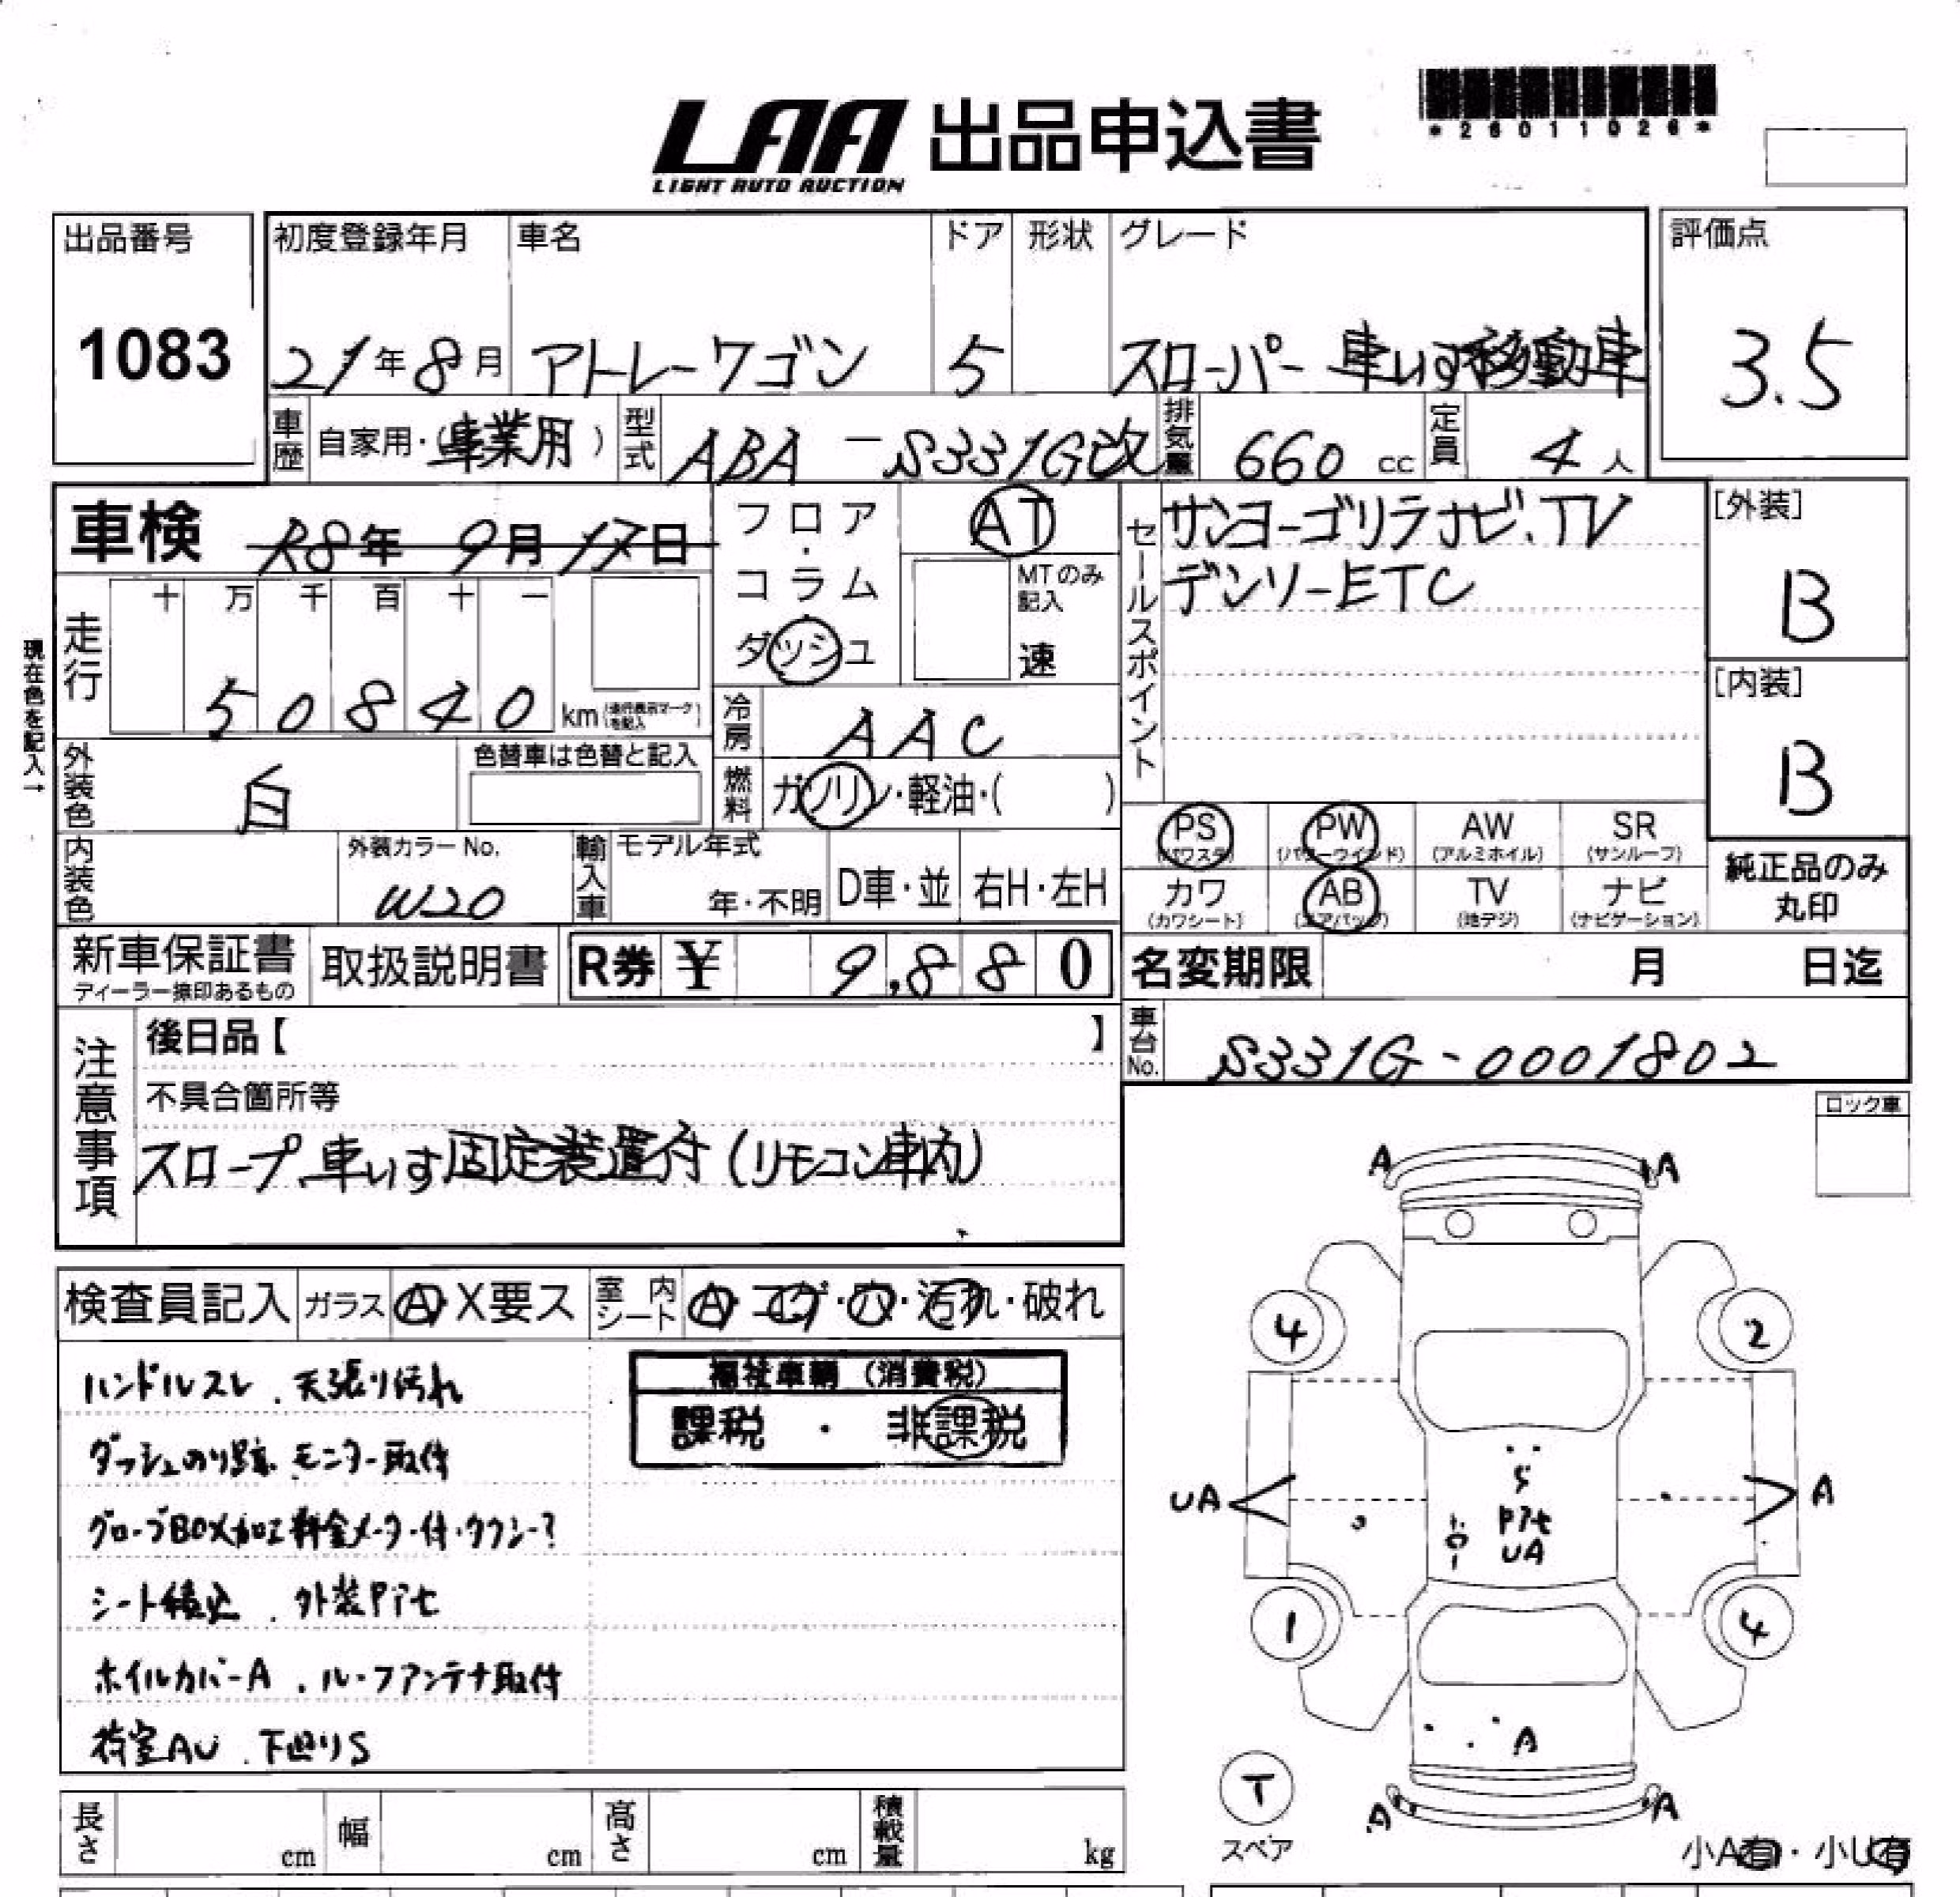 LAA 出品申込書
LIGHT AUTO AUCTION
*26011026*
出品番号
1083
初度登録年月 車名 ドア 形状 グレード
21年8月 アトレーワゴン 5 スローパー 車いす移動車
評価点
3.5
車歴 自家用・(事業用) 型式 ABA-S331G改 排気量 660 cc 定員 4人
車検 R8年 9月 17日
フロア・コラム
ダッシュ
AT
MTのみ記入
速
セールスポイント
サンヨーゴリラナビ、TV
デンソーETC
[外装]
B
[内装]
B
現在色を記入→
走行 十 万 千 百 十 一
50840 km (走行表示マークを記入)
冷房 AAC
外装色 白 色替車は色替と記入
燃料 ガソリン・軽油・( )
内装色 外装カラーNo. W20
輸入車 モデル年式 年・不明 D車・並 右H・左H
PS (パワステ) PW (パワーウインド) AW (アルミホイル) SR (サンルーフ)
カワ (カワシート) AB (エアバッグ) TV (地デジ) ナビ (ナビゲーション)
純正品のみ丸印
新車保証書 ディーラー捺印あるもの 取扱説明書 R券 ¥ 9,880
名変期限 月 日迄
車台No. S331G-0001802
注意事項
後日品【 】
不具合箇所等
スロープ、車いす固定装置付(リモコン車内)
ロック車
検査員記入 ガラス A・X要ス 室内シート A・コゲ・穴・汚れ・破れ
ハンドルスレ、天張り汚れ
ダッシュのり跡、モニター取付
グローブBOX加工 料金メーター付・タクシー?
シート積込、外装Pナセ
ホイルカバーA、ルーフアンテナ取付
荷室AU、下廻りS
福祉車輌(消費税)
課税・非課税
A A
4 2
UA A
S
Pナセ
UA
1 4
A
T
スペア
A A
小A有・小U有
長さ cm 幅 cm 高さ cm 積載量 kg